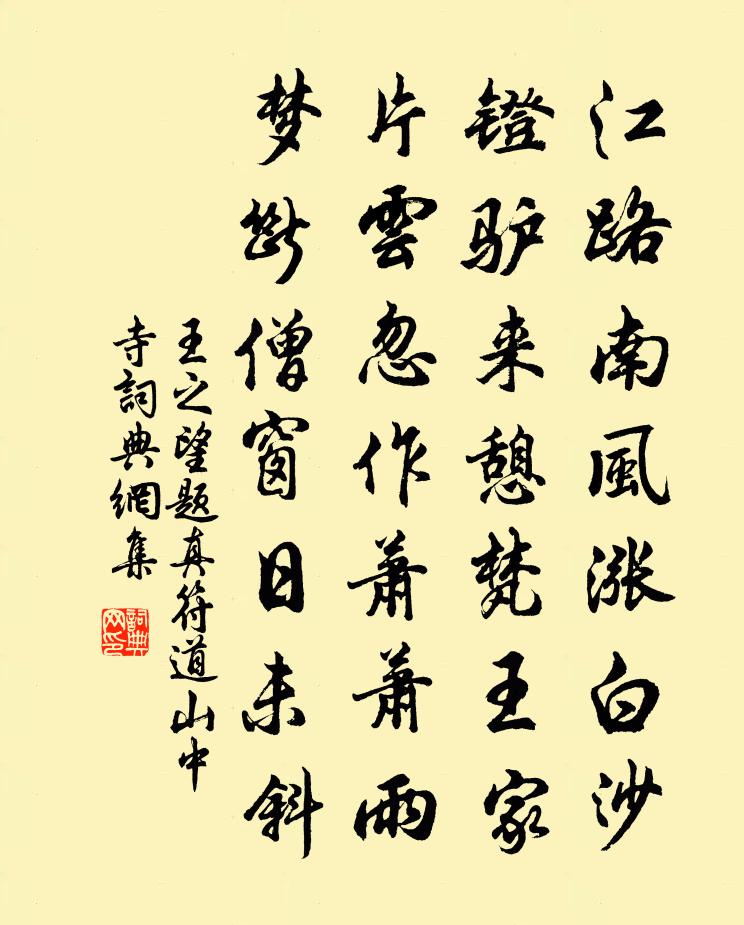 江路南風漲白沙
镫驴来憩梵王家
片雲忽作蕭蕭雨
梦斷僧窗日未斜
王之望题真符道山中
寺詞典網集
詞典
网印